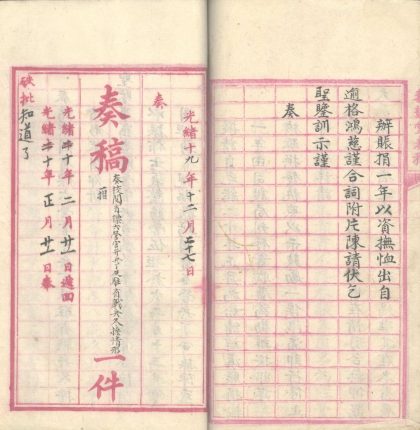 辦賬捐一年以資撫恤出自
逾格鴻慈謹合詞附片陳請伏乞
聖鑒訓示謹
奏
光緒十九年十二月二十七日
奏
奏稿
一摺
一件
光緒二十年二月廿一日遞回
光緒二十年正月廿一日奉
硃批知道了